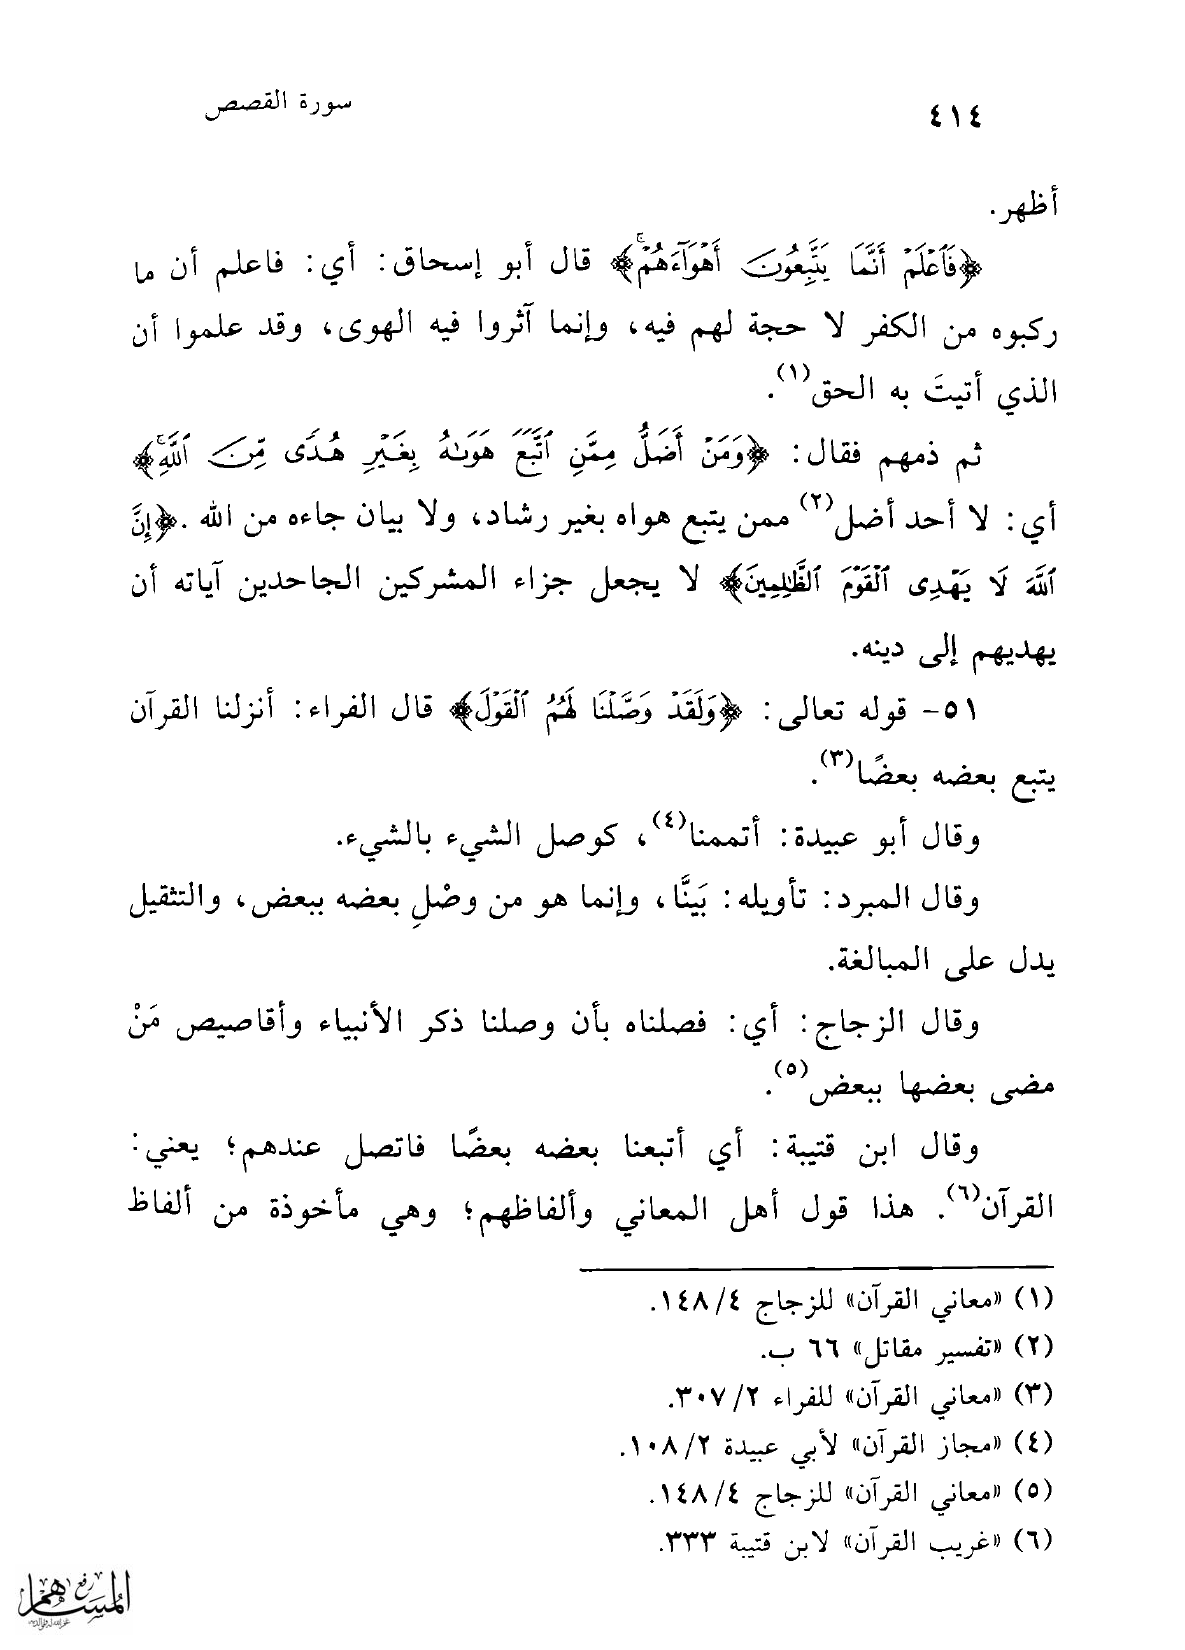 ٤١٤
سورة القصص
أظهر.
﴿فَٱعۡلَمۡ أَنَّمَا يَتَّبِعُونَ أَهۡوَآءَهُمۡۚ﴾ قال أبو إسحاق: أي: فاعلم أن ما
ركبوه من الكفر لا حجة لهم فيه، وإنما آثروا فيه الهوى، وقد علموا أن
الذي أتيتَ به الحق(١).
ثم ذمهم فقال: ﴿وَمَنۡ أَضَلُّ مِمَّنِ ٱتَّبَعَ هَوَىٰهُ بِغَيۡرِ هُدٗى مِّنَ ٱللَّهِۚ﴾
أي: لا أحد أضل(٢) ممن يتبع هواه بغير رشاد، ولا بيان جاءه من الله .﴿إِنَّ
ٱللَّهَ لَا يَهۡدِى ٱلۡقَوۡمَ ٱلظَّٰلِمِينَ﴾ لا يجعل جزاء المشركين الجاحدين آياته أن
يهديهم إلى دينه.
٥١- قوله تعالى: ﴿وَلَقَدۡ وَصَّلۡنَا لَهُمُ ٱلۡقَوۡلَ﴾ قال الفراء: أنزلنا القرآن
يتبع بعضه بعضًا(٣).
وقال أبو عبيدة: أتممنا(٤)، كوصل الشيء بالشيء.
وقال المبرد: تأويله: بَينَّا، وإنما هو من وصْلِ بعضه ببعض، والتثقيل
يدل على المبالغة.
وقال الزجاج: أي: فصلناه بأن وصلنا ذكر الأنبياء وأقاصيص مَنْ
مضى بعضها ببعض(٥).
وقال ابن قتيبة: أي أتبعنا بعضه بعضًا فاتصل عندهم؛ يعني:
القرآن(٦). هذا قول أهل المعاني وألفاظهم؛ وهي مأخوذة من ألفاظ
(١) «معاني القرآن» للزجاج ٤/ ١٤٨.
(٢) «تفسير مقاتل» ٦٦ ب.
(٣) «معاني القرآن» للفراء ٢/ ٣٠٧.
(٤) «مجاز القرآن» لأبي عبيدة ٢/ ١٠٨.
(٥) «معاني القرآن» للزجاج ٤/ ١٤٨.
(٦) «غريب القرآن» لابن قتيبة ٣٣٣.